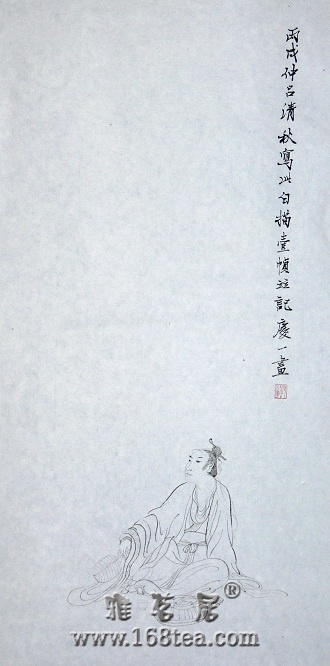 丙戌仲吕清秋寫此白描壹幀並記慶一畫
雅茗居®
www.168tea.com